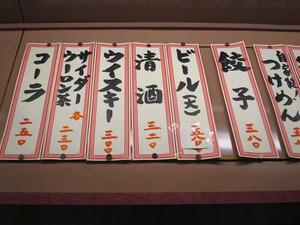 コーラ 二五〇
サイダー
ウーロン茶
各 二三〇
ウイスキー 三〇〇
清酒 三二〇
ビール(大) 五八〇
餃子 三八〇
自家製
つけめん